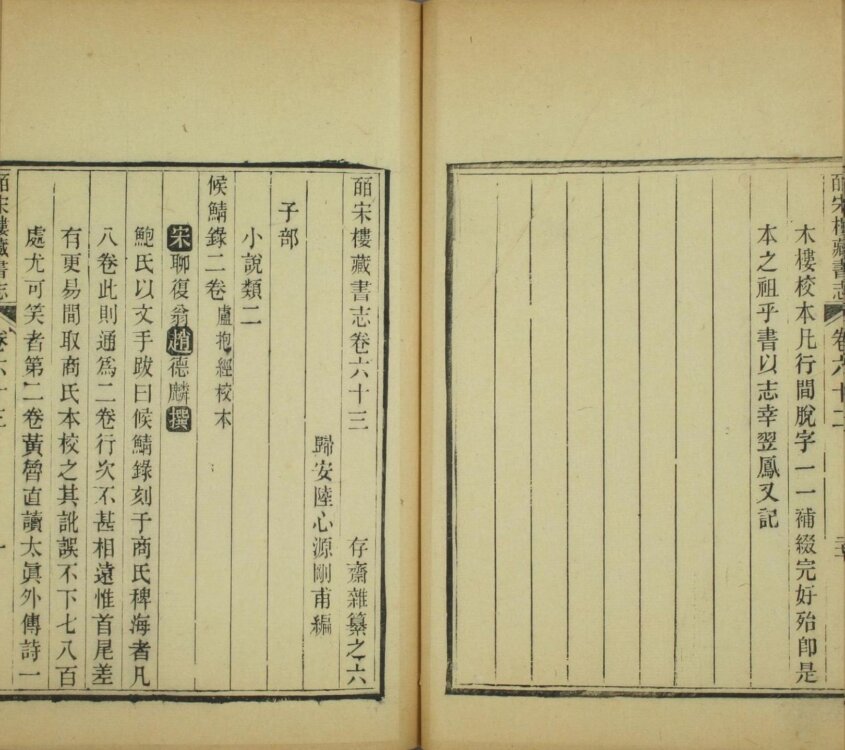 皕宋樓藏書志 卷六十二
木樓校本凡行間脫字一一補綴完好殆卽是
本之祖乎書以志幸翌鳳又記
皕宋樓藏書志卷六十三 存齋雜纂之六
歸安陸心源剛甫編
子部
小說類二
候鯖錄二卷 盧抱經校本
宋聊復翁趙德麟撰
鮑氏以文手跋曰候鯖錄刻于商氏稗海者凡
八卷此則通爲二卷行次不甚相遠惟首尾差
有更易間取商氏本校之其訛誤不下七八百
處尤可笑者第二卷黃魯直讀太眞外傳詩一
皕宋樓藏書志 卷六十三 一